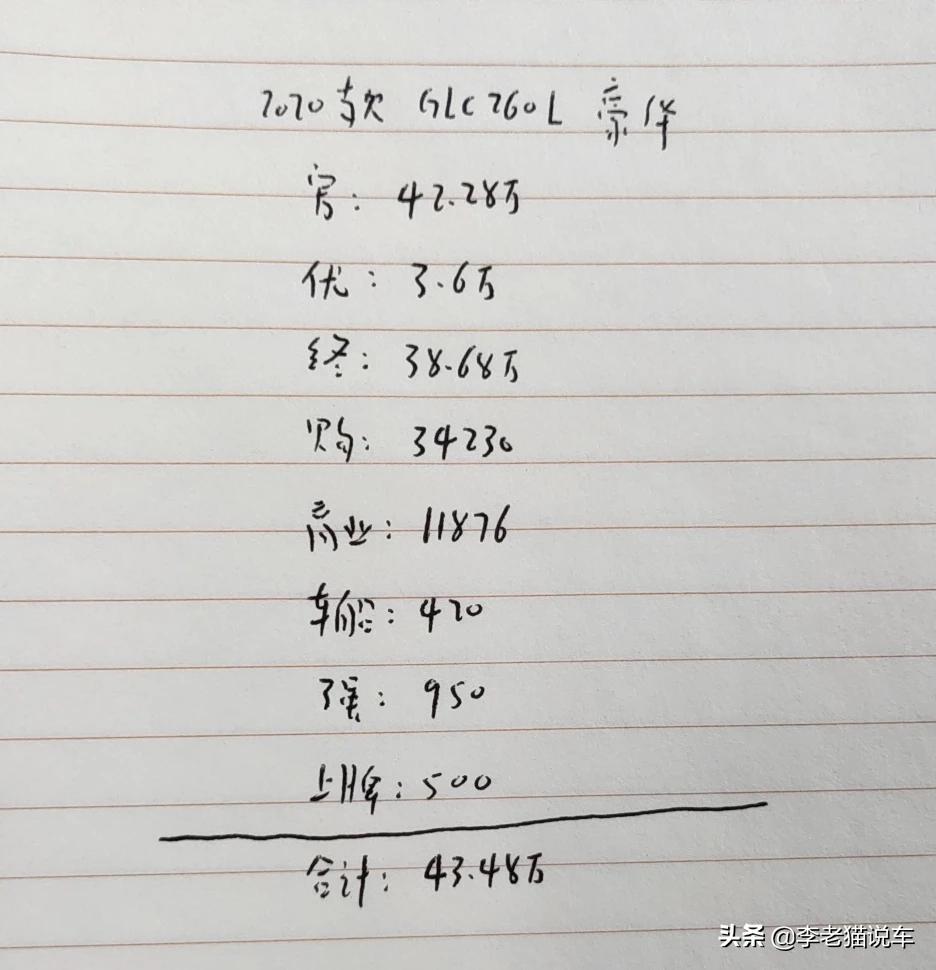 2020款 GLC260L 豪华
官: 42.28万
优: 3.6万
终: 38.68万
购: 34230
商业: 11876
车船: 420
强: 950
上牌: 500
合计: 43.48万
头条 @李老猫说车